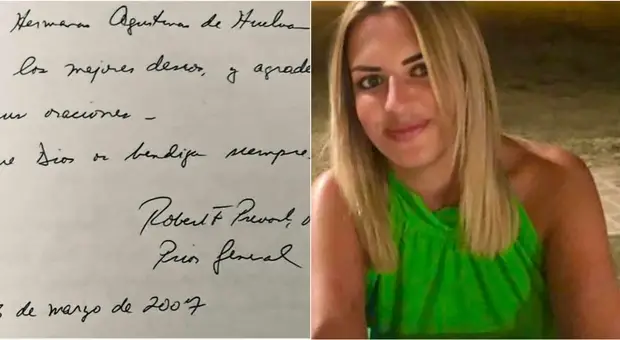 Hermanas Agustinas de Huelva
los mejores deseos, y agrade
us oraciones -
ue Dios os bendiga siempre.
Robert F Prevost, o
Prior General
3 de marzo de 2007